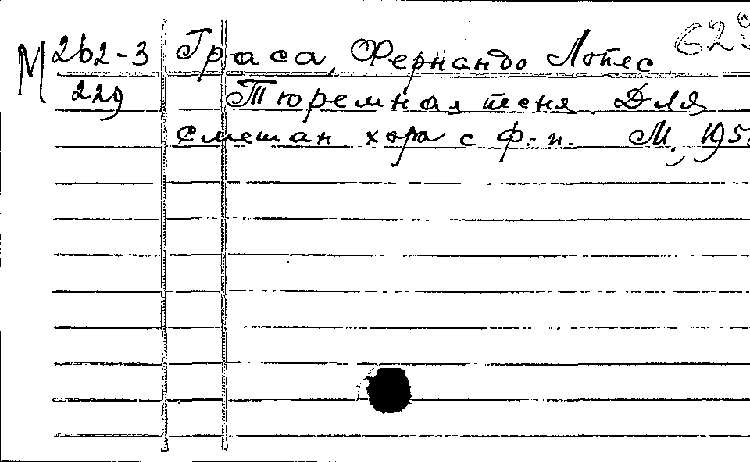 М 262-3 Граса, Фернандо Лопес
229 Тюремная песня. Для
смешан. хора с ф-п. М., 195